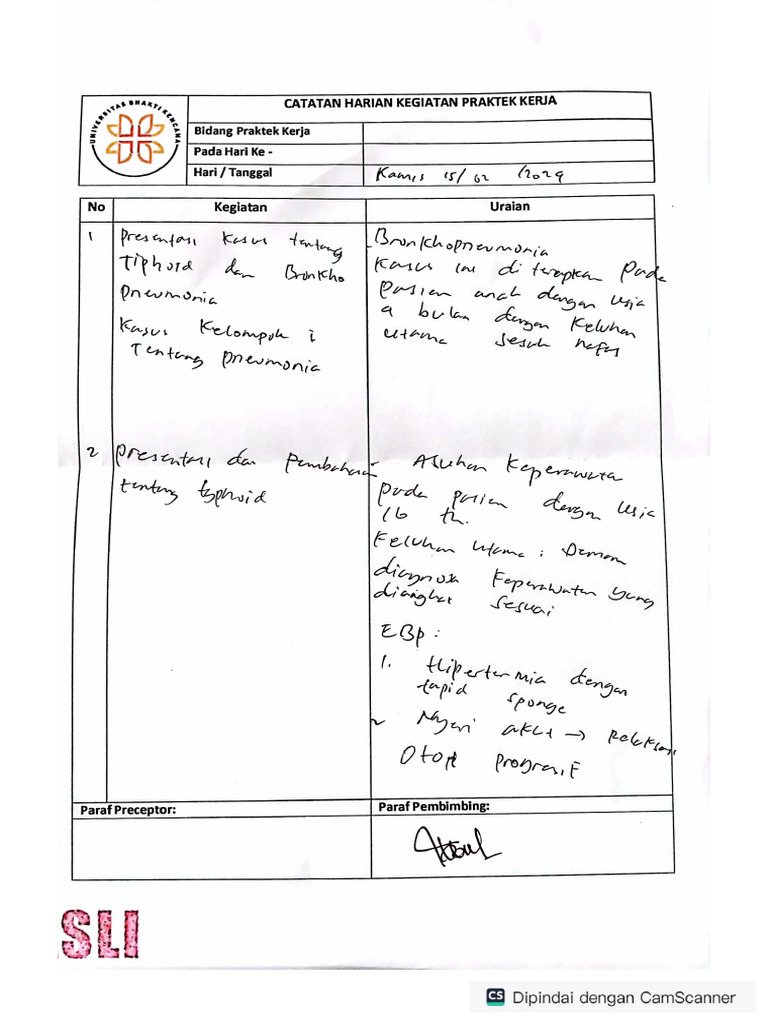 UNIVERSITAS BHAKTI KENCANA
CATATAN HARIAN KEGIATAN PRAKTEK KERJA
Bidang Praktek Kerja
Pada Hari Ke -
Hari / Tanggal
Kamis 15/02 /2024
No
Kegiatan
Uraian
1
Presentasi Kasus tentang
Tiphoid dan Bronkho
pneumonia
Kasus Kelompok 1
Tentang pneumonia
- Bronkhopneumonia
Kasus ini di terapkan pada
pasien anak dengan usia
9 bulan dengan Keluhan
utama sesak nafas
2
presentasi dan pembahasan
tentang typhoid
- Asuhan Keperawata
pada pasien dengan usia
16 th.
Keluhan utama : Demam
diagnosa Keperawatan yang
diangkat sesuai
EBp :
1. Hipertermia dengan
tapid sponge
2 Nyeri akut → Relaksasi
Otot progresif
Paraf Preceptor:
Paraf Pembimbing:
SLI
CS Dipindai dengan CamScanner